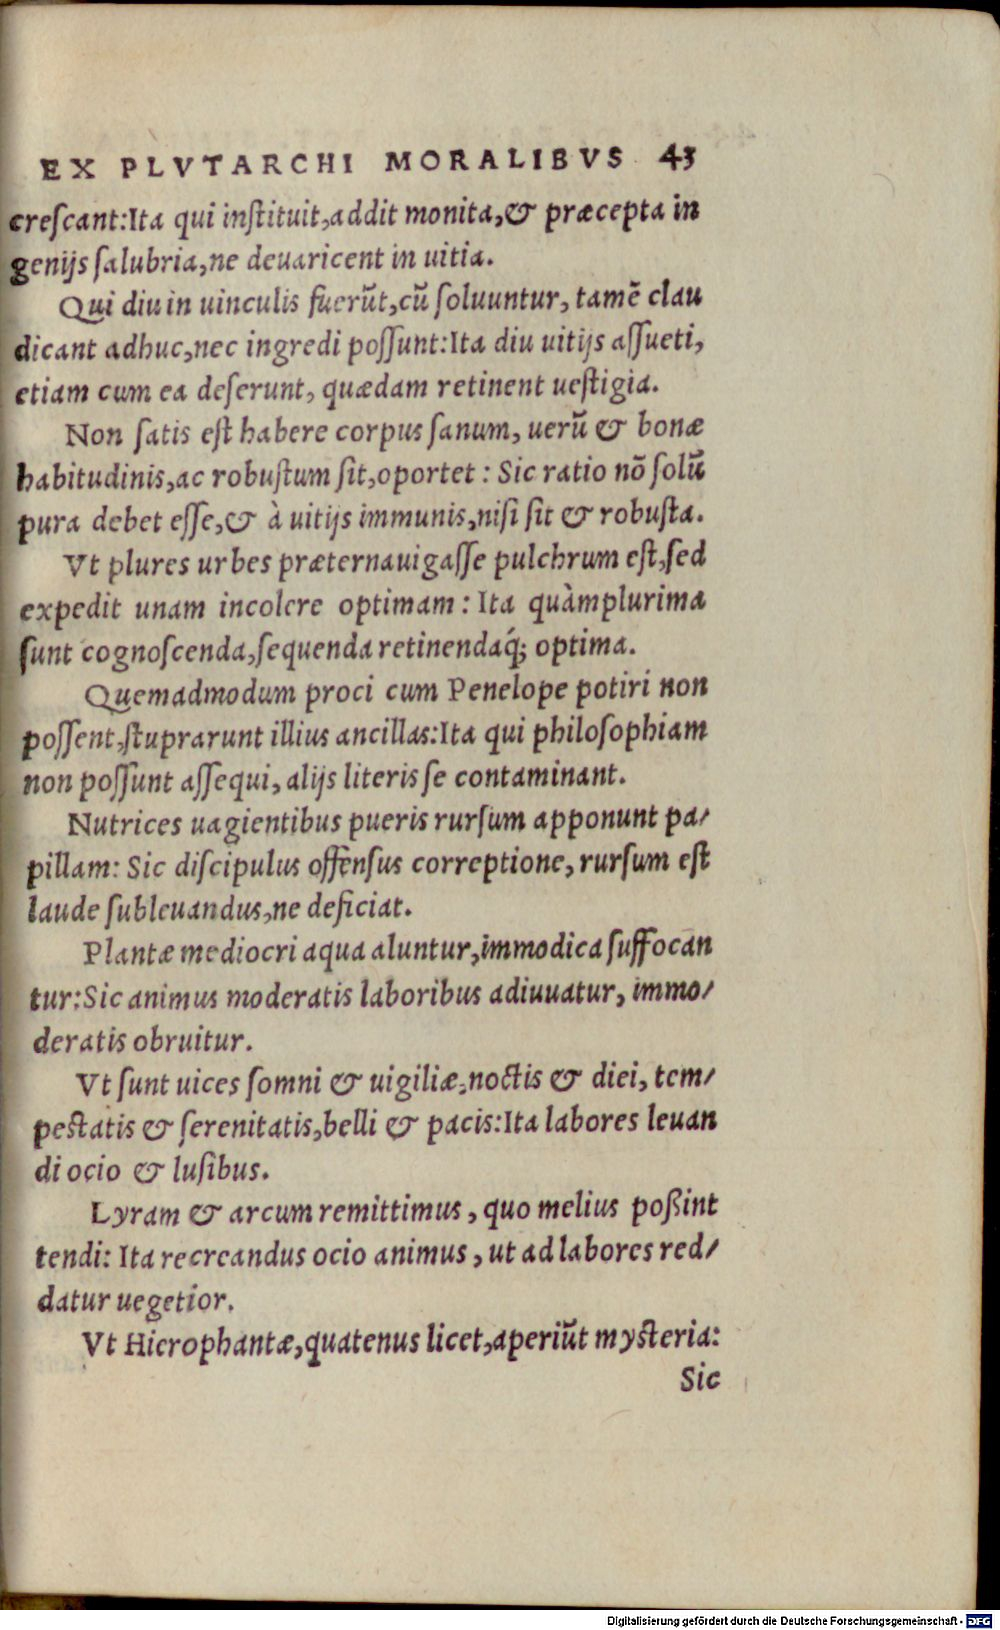 EX PLVTARCHI MORALIBVS 43
creſcant:Ita qui inſtituit,addit monita,& præcepta in
genijs ſalubria,ne deuaricent in uitia.
Qui diu in uinculis fuerūt,cū ſoluuntur, tamē clau
dicant adhuc,nec ingredi poſſunt:Ita diu uitijs aſſueti,
etiam cum ea deſerunt, quædam retinent ueſtigia.
Non ſatis eſt habere corpus ſanum, uerū & bonæ
habitudinis,ac robuſtum ſit,oportet : Sic ratio nō ſolū
pura debet eſſe,& à uitijs immunis,niſi ſit & robuſta.
Vt plures urbes præternauigaſſe pulchrum eſt,ſed
expedit unam incolere optimam : Ita quàmplurima
ſunt cognoſcenda,ſequenda retinendaq́; optima.
Quemadmodum proci cum Penelope potiri non
poſſent,ſtuprarunt illius ancillas:Ita qui philoſophiam
non poſſunt aſſequi, alijs literis ſe contaminant.
Nutrices uagientibus pueris rurſum apponunt pa/
pillam: Sic diſcipulus offenſus correptione, rurſum eſt
laude ſubleuandus,ne deficiat.
Plantæ mediocri aqua aluntur,immodica ſuffocan
tur:Sic animus moderatis laboribus adiuuatur, immo/
deratis obruitur.
Vt ſunt uices ſomni & uigiliæ,noctis & diei, tem/
peſtatis & ſerenitatis,belli & pacis:Ita labores leuan
di ocio & luſibus.
Lyram & arcum remittimus, quo melius poßint
tendi: Ita recreandus ocio animus, ut ad labores red/
datur uegetior.
Vt Hierophantæ,quatenus licet,aperiūt myſteria:
Sic
Digitalisierung gefördert durch die Deutsche Forschungsgemeinschaft - DFG